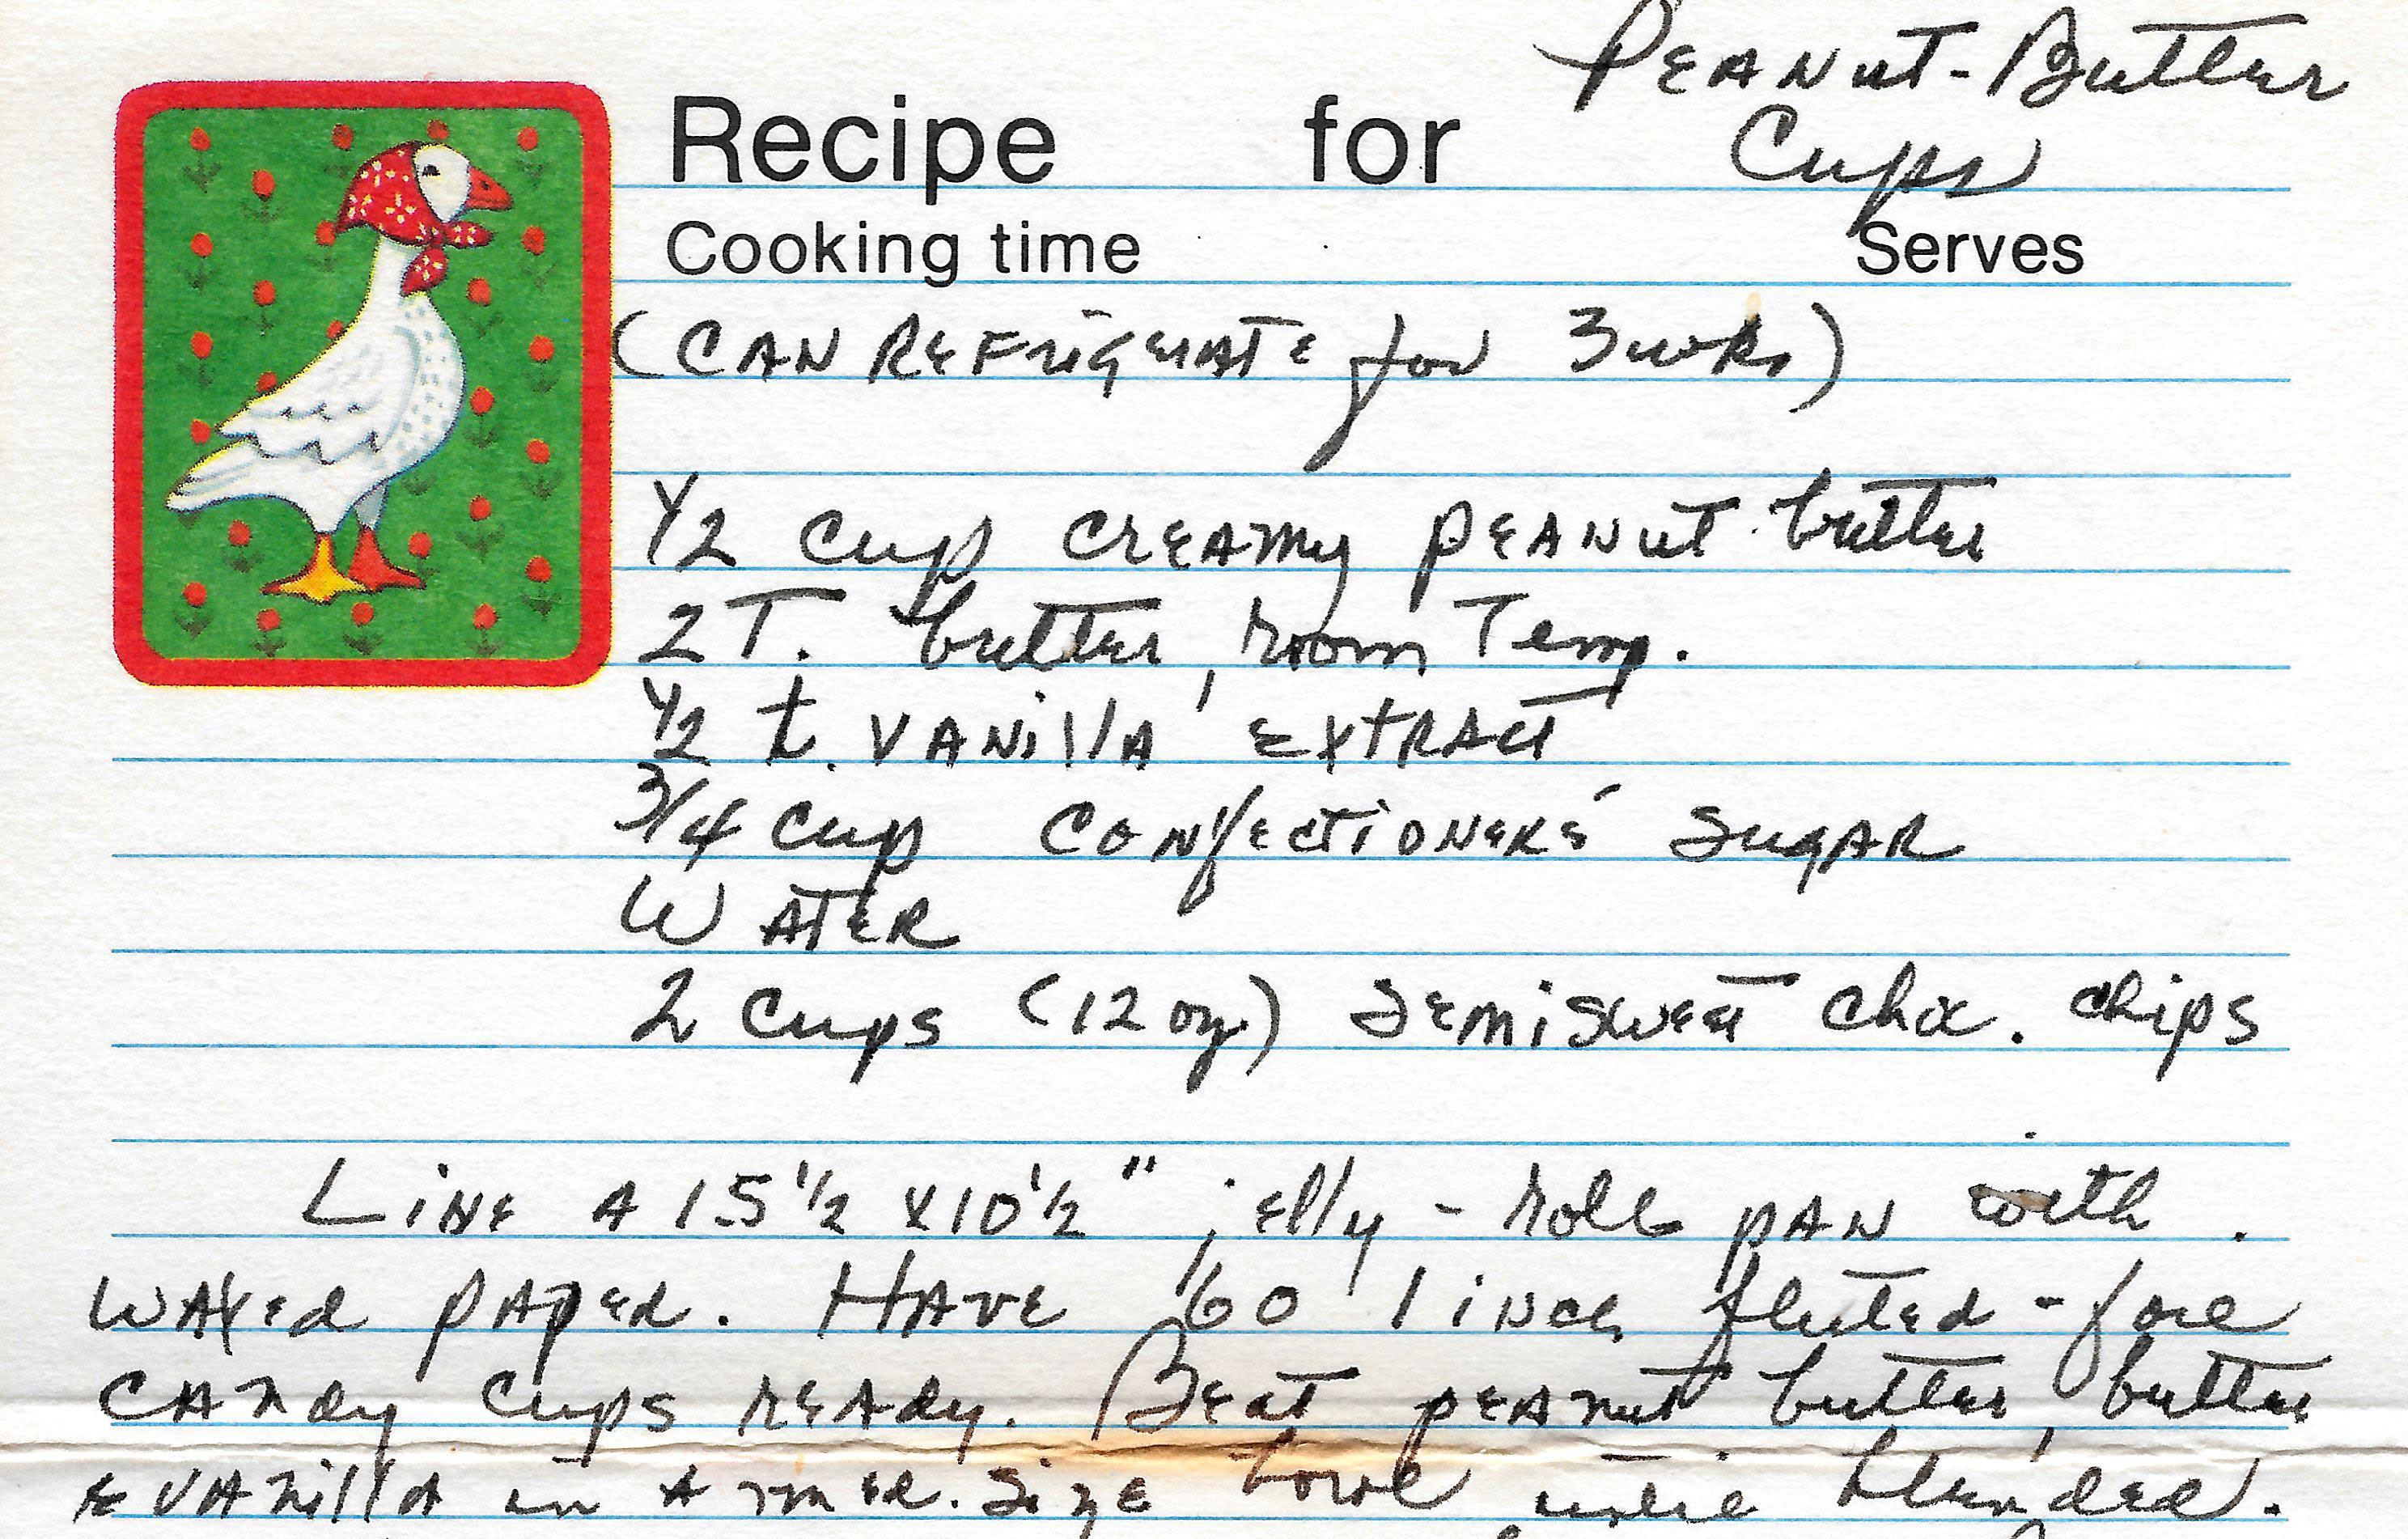 Peanut-Butter
Recipe for Cups
Cooking time Serves
(CAN Refrigerate for 3 wks)
1/2 cup creamy peanut butter
2 T. butter, room Temp.
1/2 t. vanilla extract
3/4 cup confectioners' sugar
Water
2 cups (12 oz) semisweet choc. chips
Line a 15 1/2 x 10 1/2" jelly-roll pan with
waxed paper. Have 60 1 inch fluted-foil
candy cups ready. Beat peanut butter, butter
& vanilla in a med. size bowl until blended.